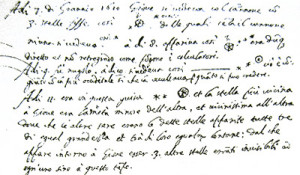 Adi 7. di Gennaio 1610 Giove si vedeva col cannone
3. stelle fisse così delle quali il cannone
niuna si vedeva. à dì 8. appariva così era
diretto et non retrogrado come i calculatori.
Adi 9. fu nugolo. à dì si vedeva così cioè
si che la occultava quanto si può credere.
Adi 11. era in questa guisa et la stella più vicina
à Giove era la metà minore dell'altra, et vicinissima all'altra
dove che le altre sere erano le dette stelle apparite tutte tre
di egual et tra di loro lontane; dal che
appare intorno à Giove esser 3. altre stelle erranti invisibili ad
ogniuno sino à questo